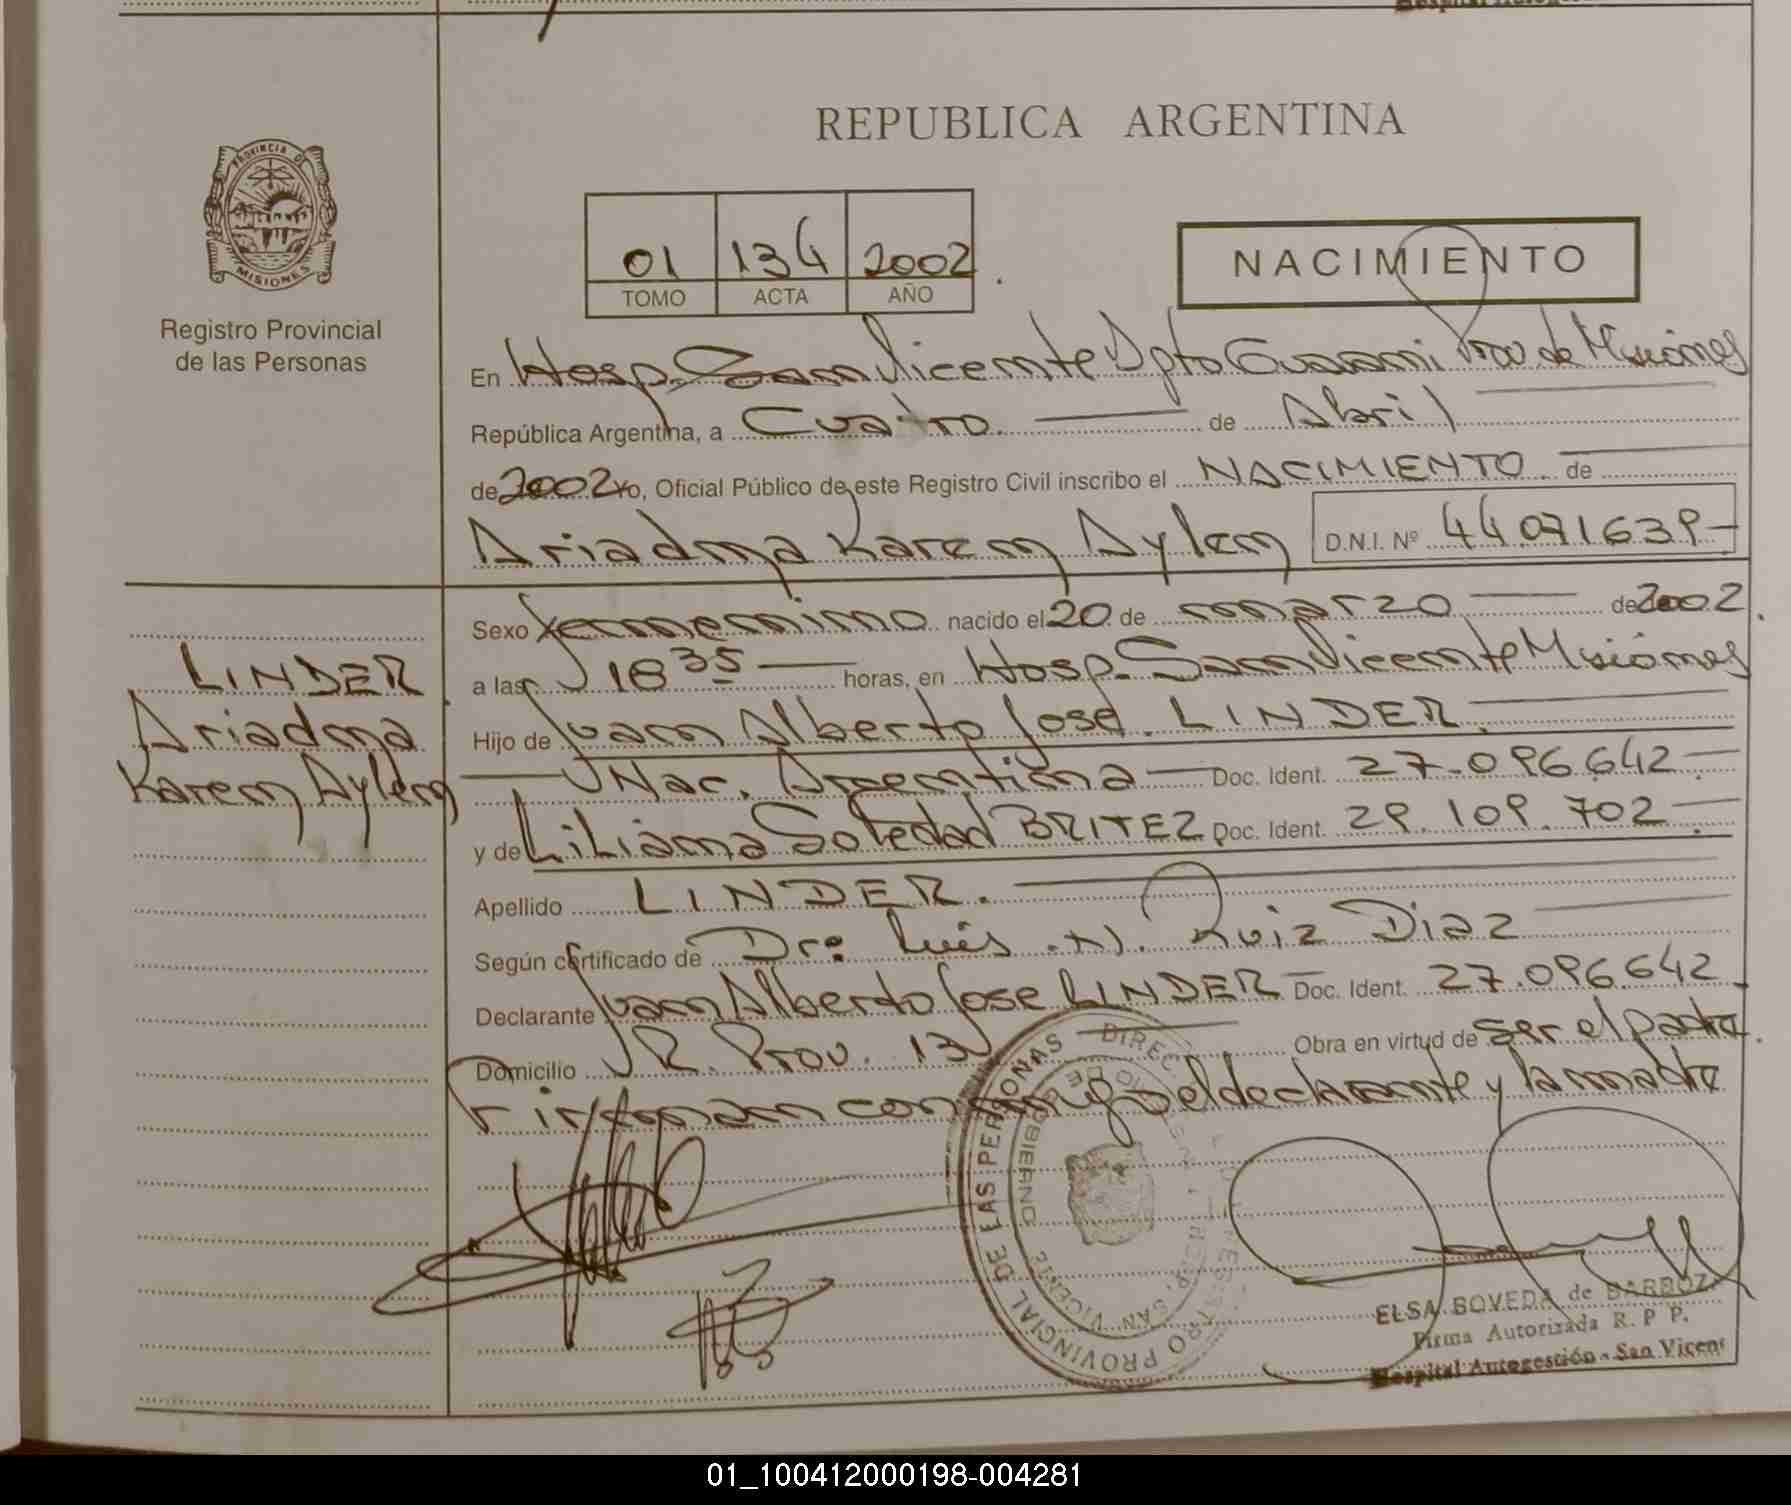 REPUBLICA ARGENTINA
PROVINCIA DE
MISIONES
Registro Provincial
de las Personas
01 134 2002
TOMO ACTA AÑO
NACIMIENTO
En Hosp. San Vicente Dpto Guarani Prov de Misiones
República Argentina, a Cuatro de Abril
de 2002 Yo, Oficial Público de este Registro Civil inscribo el NACIMIENTO de
Ariadna Karen Aylen D.N.I. Nº 44071639
Sexo femenino nacido el 20 de marzo de 2002
LINDER
Ariadna
Karen Aylen
a las 18 35 horas, en Hosp. San Vicente Misiones
Hijo de Juan Alberto Jose LINDER
Nac. Argentina Doc. Ident. 27.096.642
y de Liliana Soledad BRITEZ Doc. Ident. 29.109.702
Apellido LINDER.
Según certificado de Dr: Luis N. Ruiz Diaz
Declarante Juan Alberto Jose LINDER Doc. Ident. 27.096.642
Domicilio R. Prov. 13 Obra en virtud de ser el padre
Firman conmigo el declarante y la madre
PROVINCIAL DE LAS PERSONAS
GOBIERNO
SAN VICENTE
ELSA BOVEDA de BARBOZA
Firma Autorizada R. P P.
Hospital Autogestión - San Vicen
01_100412000198-004281